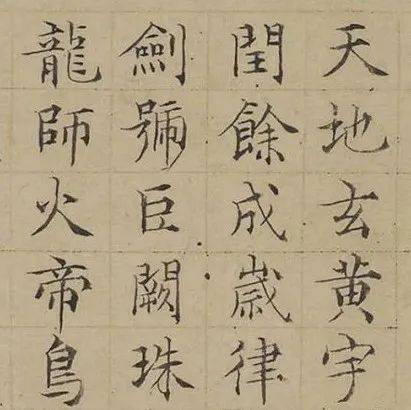 天地玄黄宇
閏餘成歲律
劍號巨闕珠
龍師火帝鳥